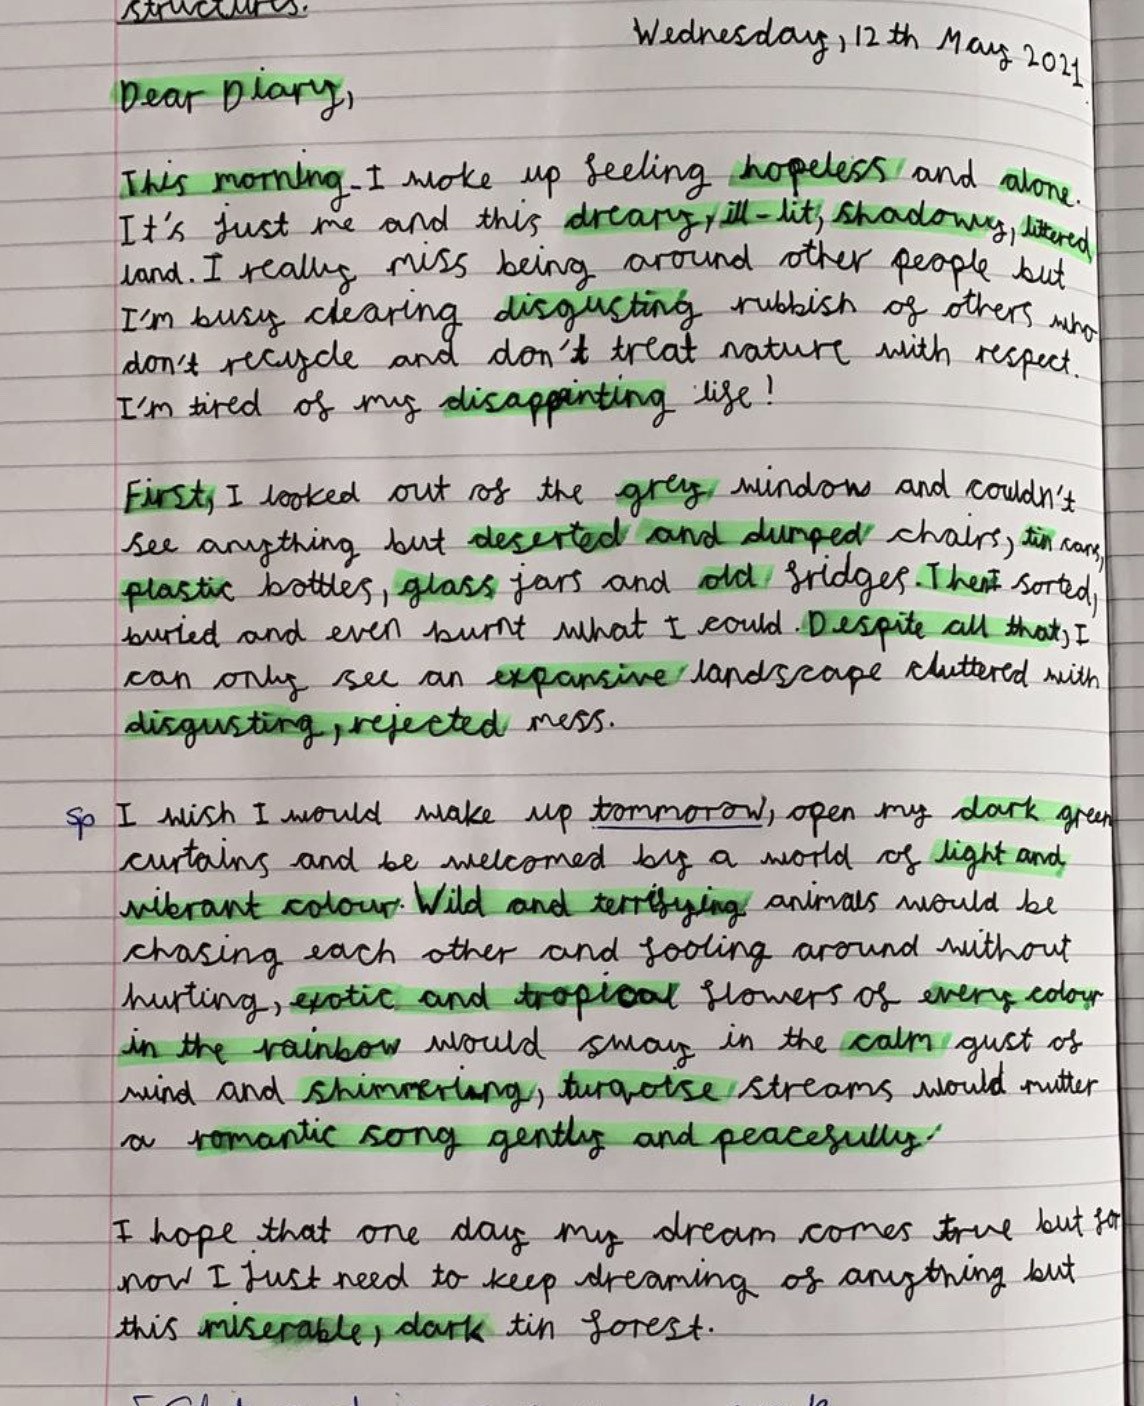 structures.
Wednesday, 12th May 2021
Dear Diary,
This morning I woke up feeling hopeless and alone.
It's just me and this dreary, ill-lit, shadowy, littered
land. I really miss being around other people but
I'm busy clearing disgusting rubbish of others who
don't recycle and don't treat nature with respect.
I'm tired of my disappinting life!
First, I looked out of the grey windows and couldn't
see anything but deserted and dumped chairs, tin cans,
plastic bottles, glass jars and old fridges. Then I sorted,
buried and even burnt what I could. Despite all that, I
can only see an expansive landscape cluttered with
disgusting, rejected mess.
sp I wish I would wake up tommorow, open my dark green
curtains and be welcomed by a world of light and
vibrant colour. Wild and terrifying animals would be
chasing each other and fooling around without
hurting, exotic and tropical flowers of every colour
in the rainbow would sway in the calm gust of
wind and shimmering, turqoise streams would mutter
a romantic song gently and peacefully.
I hope that one day my dream comes true but for
now I just need to keep dreaming of anything but
this miserable, dark tin forest.